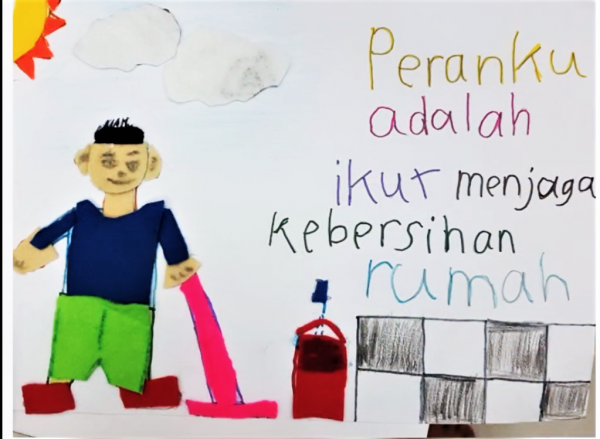 Peranku
adalah
ikut menjaga
kebersihan
rumah